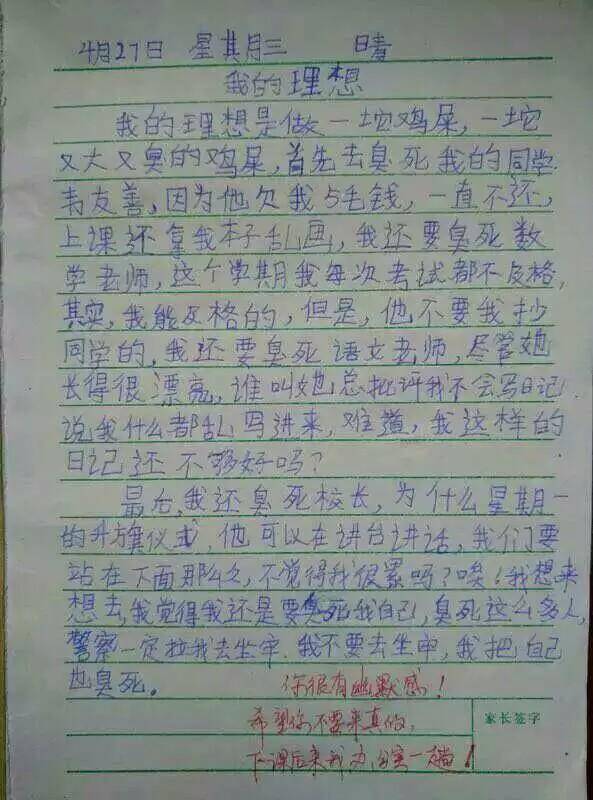 4月27日 星其月三 晴
我的理想
我的理想是做一坨鸡屎,一坨
又大又臭的鸡屎,首先去臭死我的同学
韦友善,因为他欠我5毛钱,一直不还,
上课还拿我本子乱画,我还要臭死数
学老师,这个学期我每次考试都不及格,
其实,我能及格的,但是,他不要我抄
同学的,我还要臭死语文老师,尽管她
长得很漂亮,谁叫她总批评我不会写日记
说我什么都乱写进来,难道,我这样的
日记还不够好吗?
最后,我还臭死校长,为什么星期一
的升旗仪式,他可以在讲台讲话,我们要
站在下面那么久,不觉得我很累吗?唉!我想来
想去,我觉得我还是要臭死我自己,臭死这么多人,
警察一定拉我去坐牢.我不要去坐牢,我把自己
也臭死。
你很有幽默感!
希望你不要来真的,
家长签字
下课后来我办公室一趟!